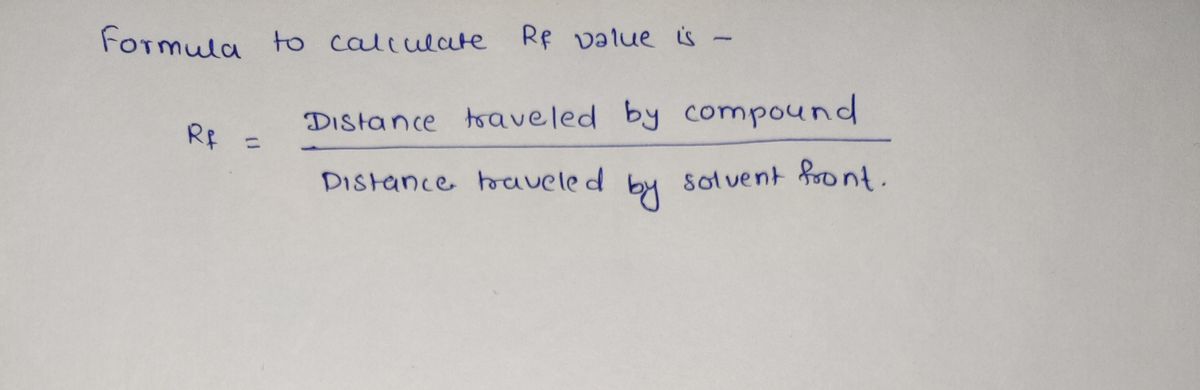 Formula to calculate Rf value is -
Rf = Distance traveled by compound
Distance traveled by solvent front.